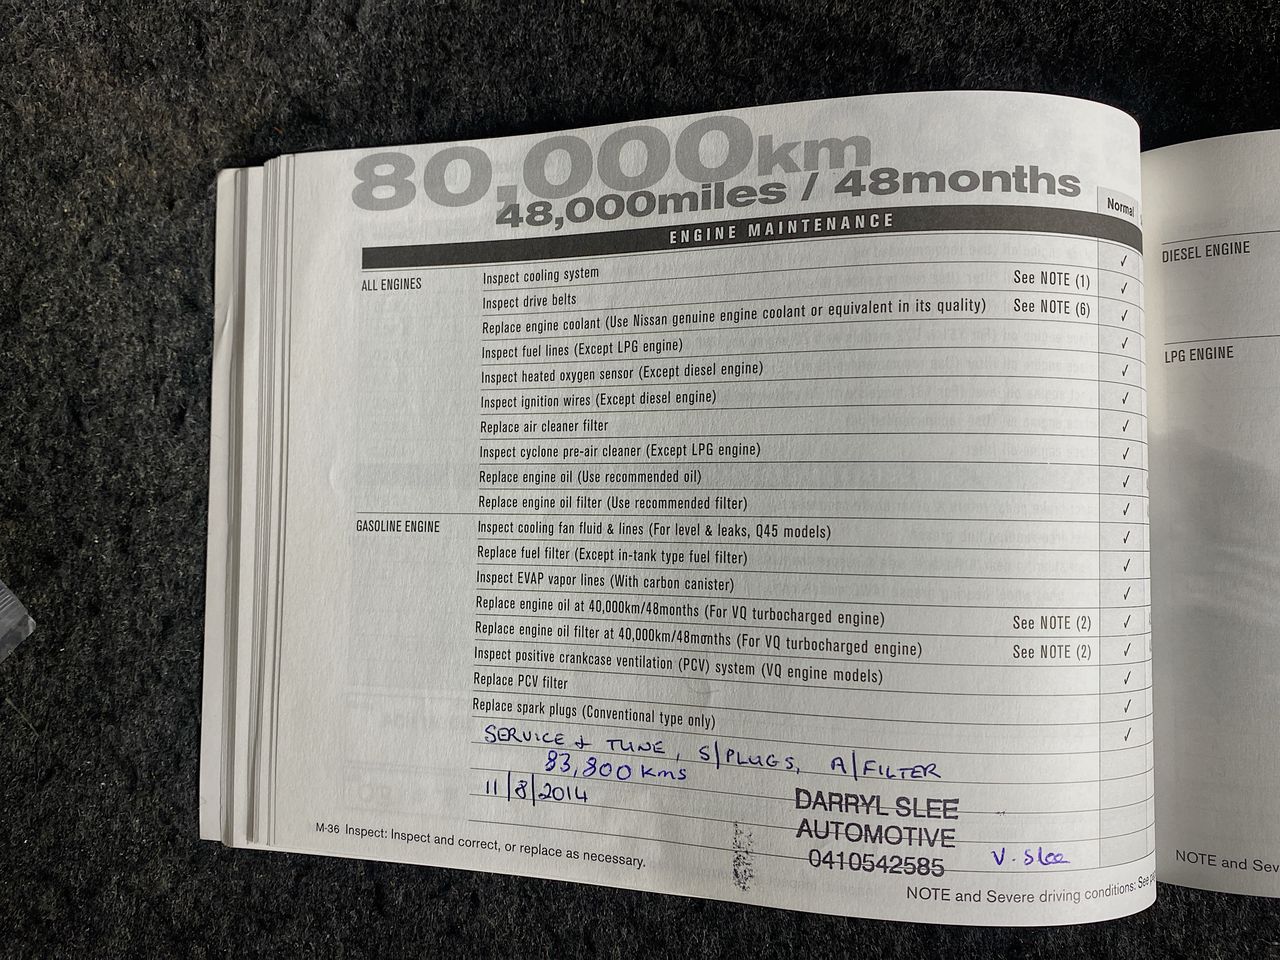 80,000km
48,000miles / 48months
Normal
ENGINE MAINTENANCE
ALL ENGINES
Inspect cooling system ✓
Inspect drive belts See NOTE (1) ✓
Replace engine coolant (Use Nissan genuine engine coolant or equivalent in its quality) See NOTE (6) ✓
Inspect fuel lines (Except LPG engine) ✓
Inspect heated oxygen sensor (Except diesel engine) ✓
Inspect ignition wires (Except diesel engine) ✓
Replace air cleaner filter ✓
Inspect cyclone pre-air cleaner (Except LPG engine) ✓
Replace engine oil (Use recommended oil) ✓
Replace engine oil filter (Use recommended filter) ✓
GASOLINE ENGINE
Inspect cooling fan fluid & lines (For level & leaks, Q45 models) ✓
Replace fuel filter (Except in-tank type fuel filter) ✓
Inspect EVAP vapor lines (With carbon canister) ✓
Replace engine oil at 40,000km/48months (For VQ turbocharged engine) See NOTE (2) ✓
Replace engine oil filter at 40,000km/48months (For VQ turbocharged engine) See NOTE (2) ✓
Inspect positive crankcase ventilation (PCV) system (VQ engine models) ✓
Replace PCV filter ✓
Replace spark plugs (Conventional type only) ✓
SERVICE & TUNE, S/PLUGS, A/FILTER
83,800 kms
11/8/2014
DARRYL SLEE
AUTOMOTIVE
0410542585
V. Slee
M-36 Inspect: Inspect and correct, or replace as necessary.
NOTE and Severe driving conditions: See
DIESEL ENGINE
LPG ENGINE
NOTE and Sev